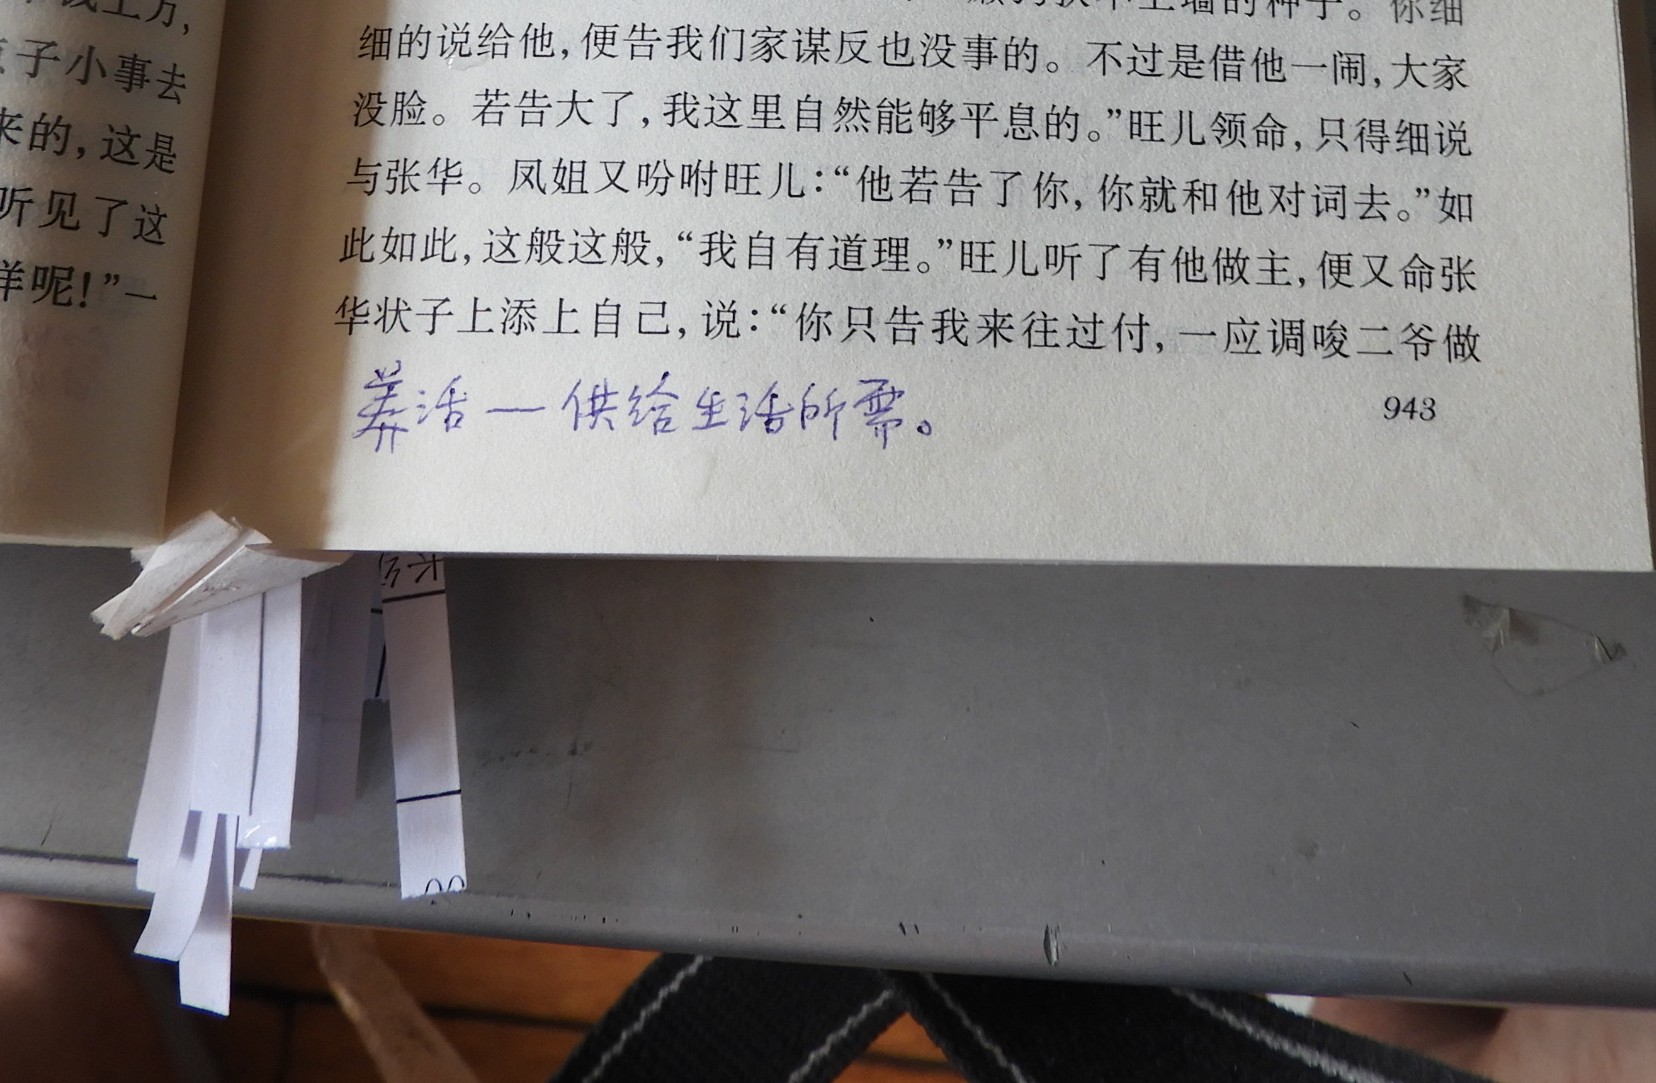 上万,
子小事去
来的,这是
听见了这
样呢!”一
扶不上墙的种子。你细
细的说给他,便告我们家谋反也没事的。不过是借他一闹,大家
没脸。若告大了,我这里自然能够平息的。”旺儿领命,只得细说
与张华。凤姐又吩咐旺儿:“他若告了你,你就和他对词去。”如
此如此,这般这般,“我自有道理。”旺儿听了有他做主,便又命张
华状子上添上自己,说:“你只告我来往过付,一应调唆二爷做
养活 — 供给生活所需。
943